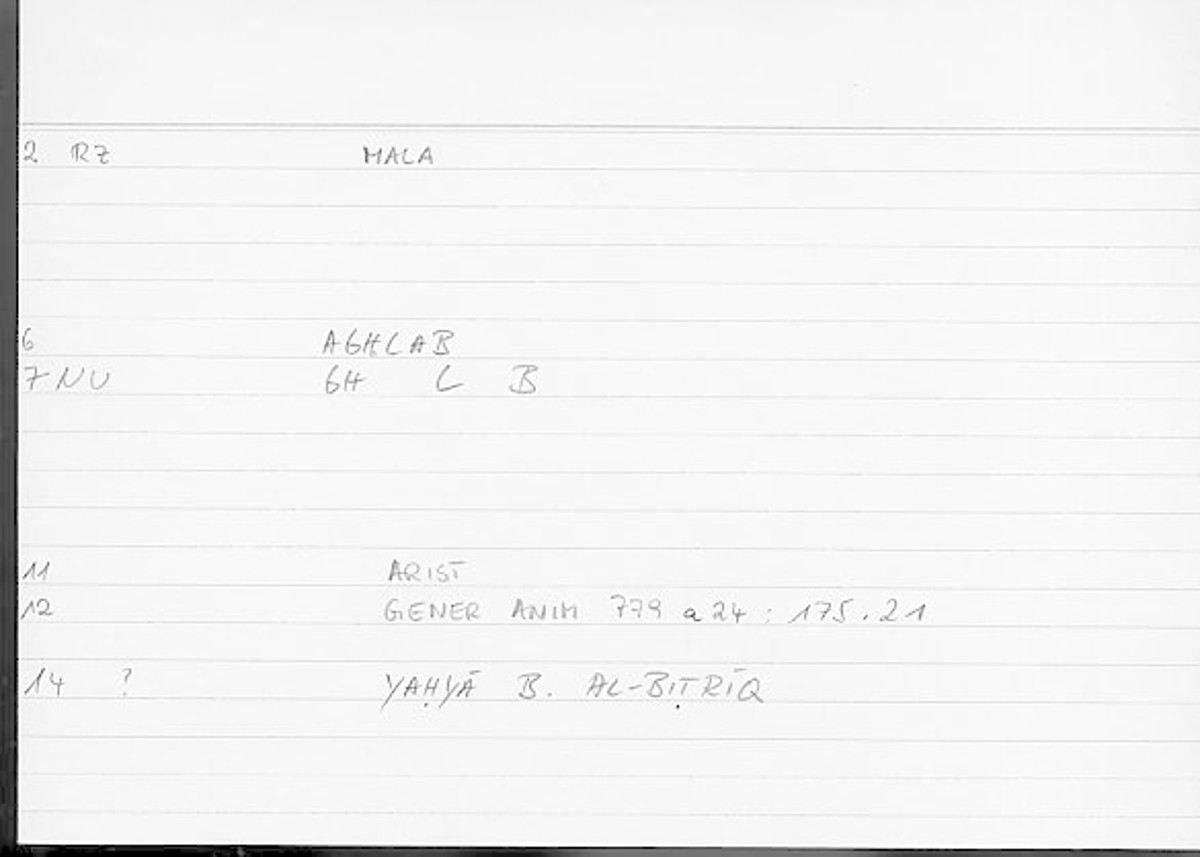 2 RZ MALA
6 AGHLAB
7 NU GH L B
11 ARIST
12 GENER ANIM 779 a 24 : 175.21
14 ? YAḤYĀ B. AL-BIṬRĪQ